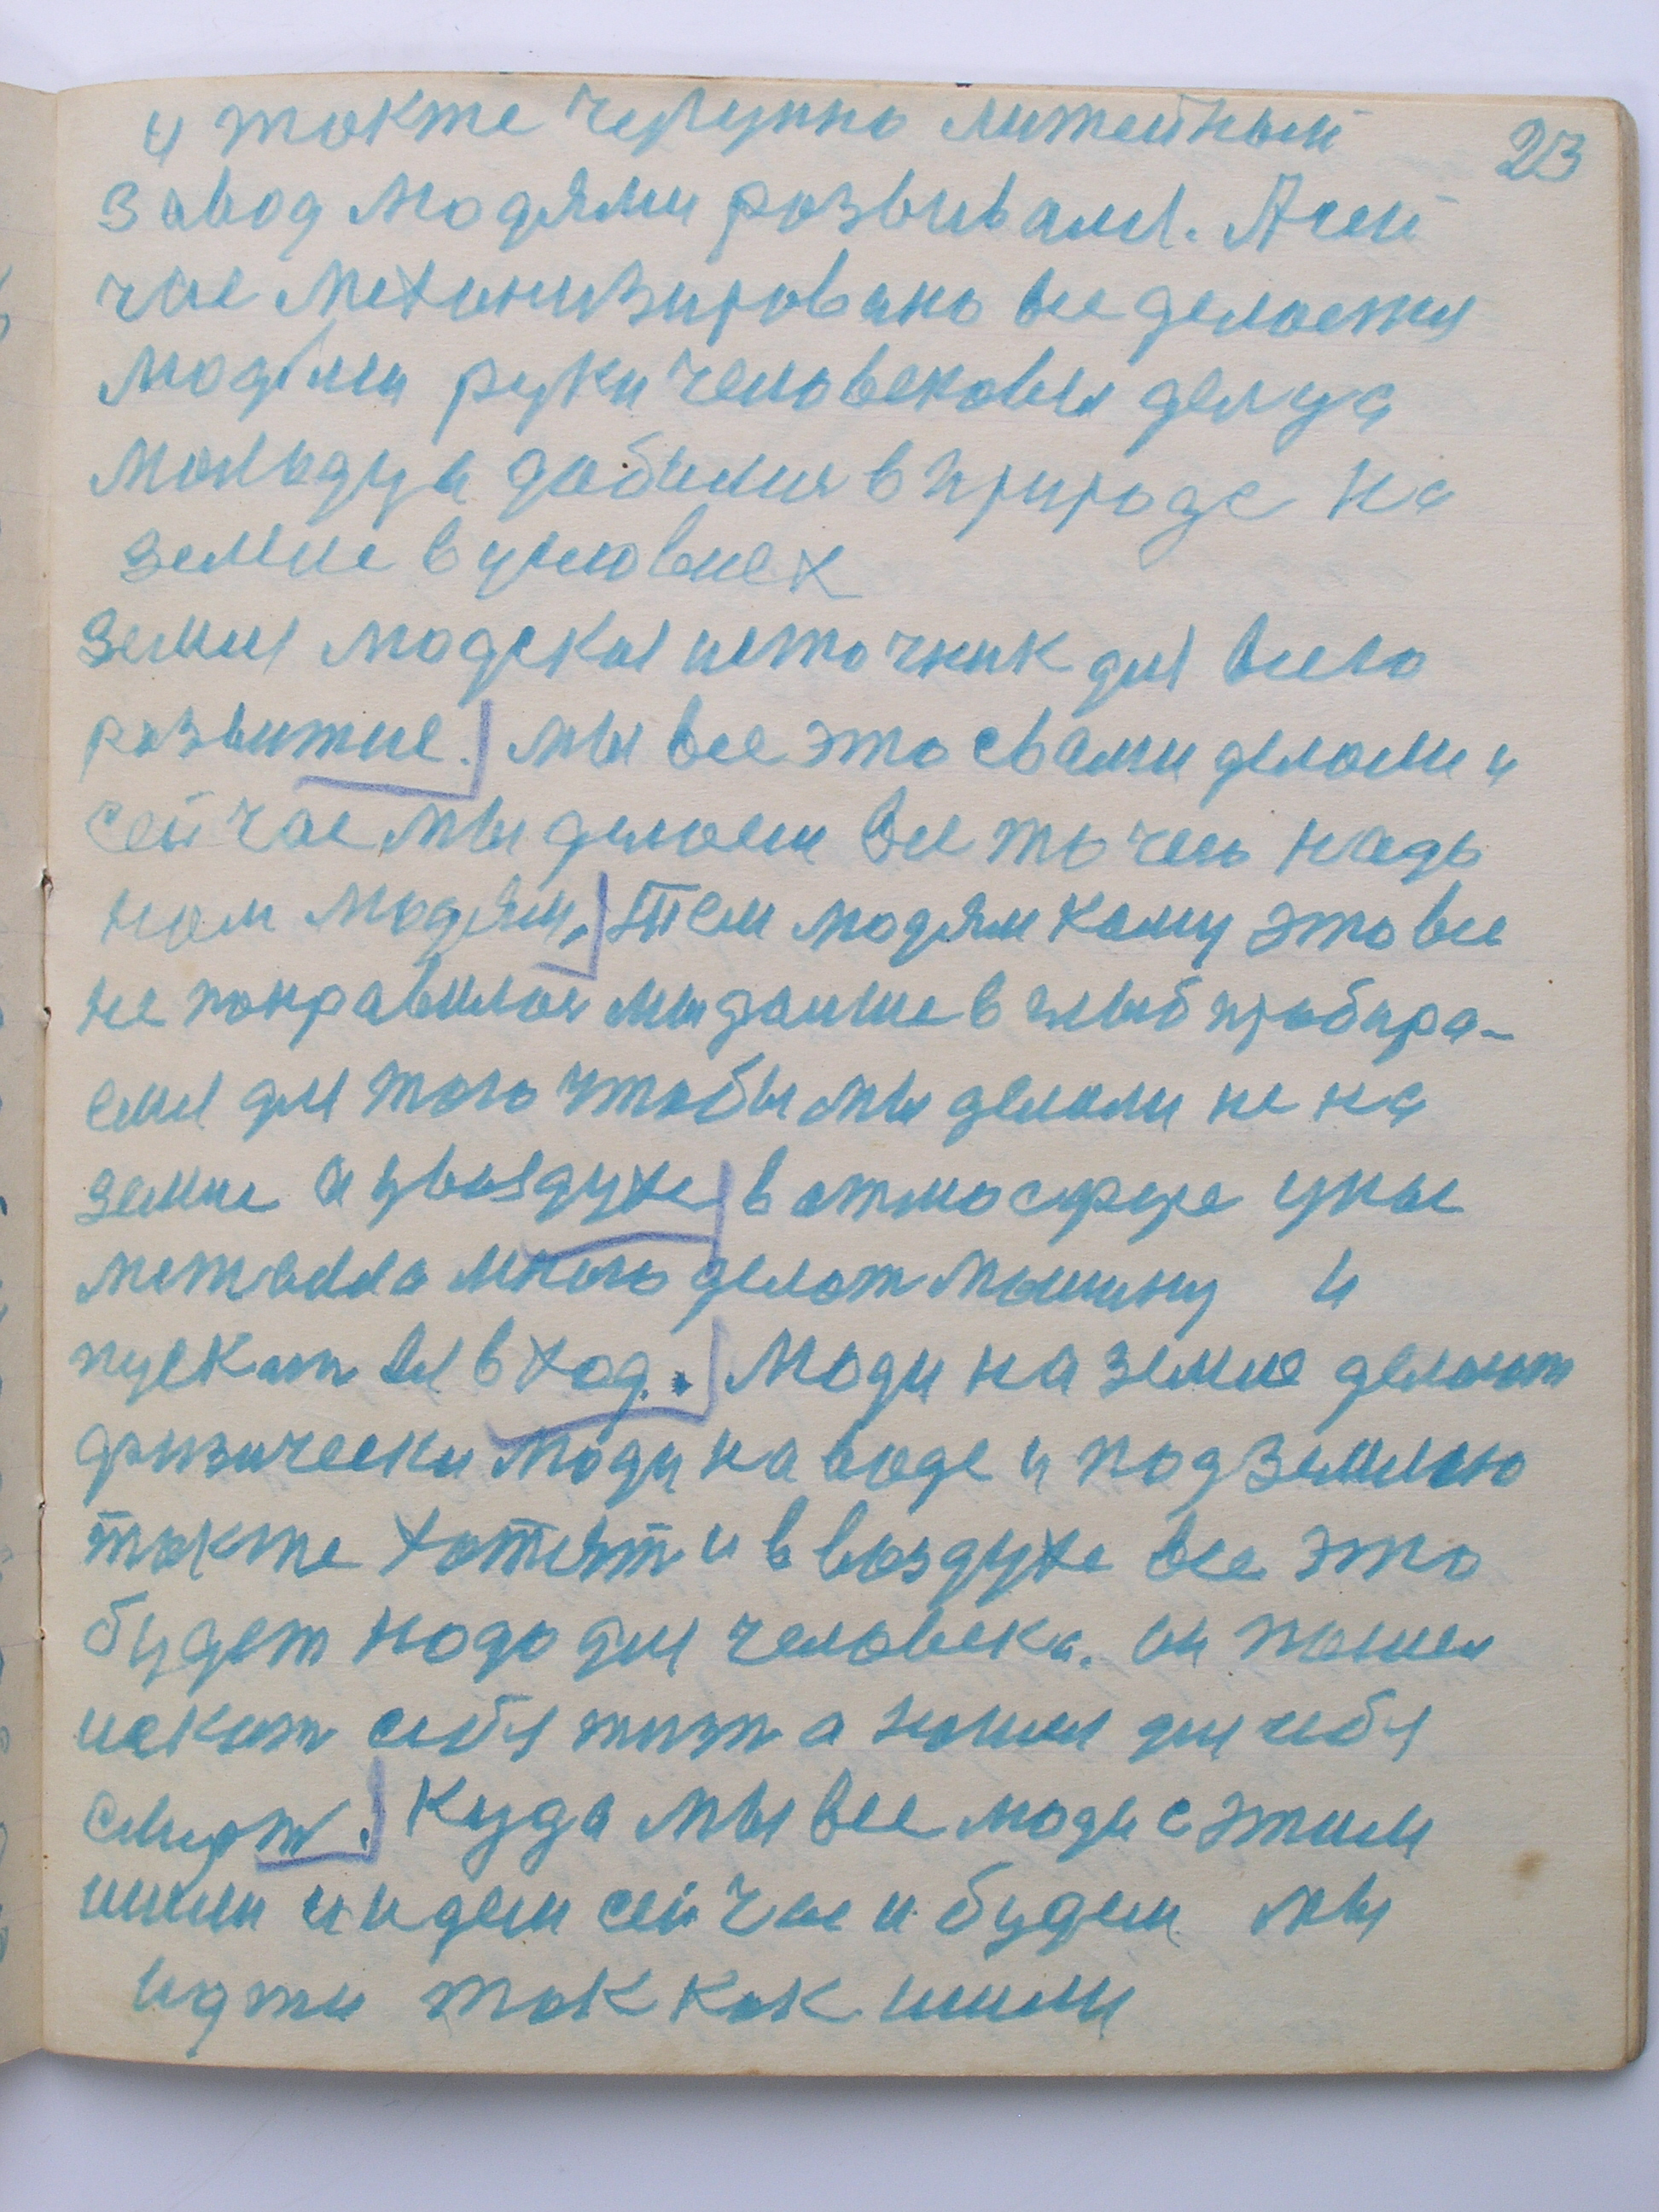 23
и также чугунно литейный
завод людями розвивался. А сей
час механизировано все делается
людями руки человековы делуа
в природе на
земле в условиех
земля людская источник для всего
розвитие. мы все это с вами делали и
сей час мы делоем все то чего надо
нам людям, тем людям кому это все
не понравилося мы дальше в глыб прбира-
емся для того чтобы мы делали не на
земле а увоздухе в атмосфере у нас
металла много делат машину и
пускат ея в ход. Люди на земле делоют
физически люди на воде и под землею
также хотят и в воздухе все это
будет надо для человека. он пошел
искат себя жизт а нашел для себя
смерт. Куда мы все люди с этим
шшли и идем сей час и будем мы
идти так как шшли